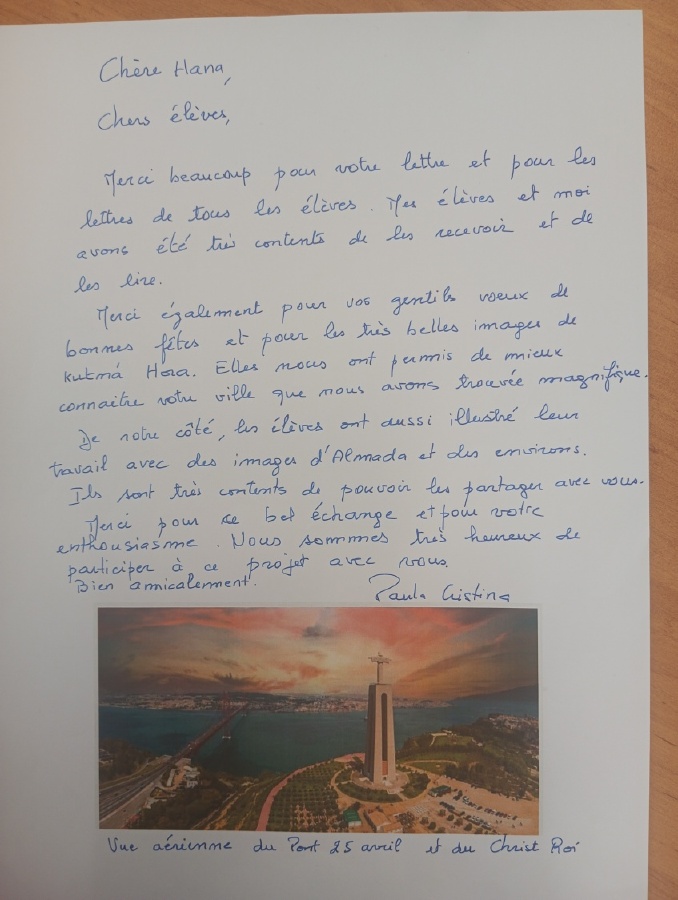 Chère Hana,
Chers élèves,
Merci beaucoup pour votre lettre et pour les
lettres de tous les élèves. Mes élèves et moi
avons été très contents de les recevoir et de
les lire.
Merci également pour vos gentils voeux de
bonnes fêtes et pour les très belles images de
kutmá Hora. Elles nous ont permis de mieux
connaitre votre ville que nous avons trouvée magnifique.
De notre côté, les élèves ont aussi illustré leur
travail avec des images d'Almada et des environs.
Ils sont très contents de pouvoir les partager avec vous.
Merci pour ce bel échange et pour votre
enthousiasme. Nous sommes très heureux de
participer à ce projet avec vous.
Bien amicalement.
Paula Cristina
Vue aérienne du Pont 25 avril et du Christ Roi